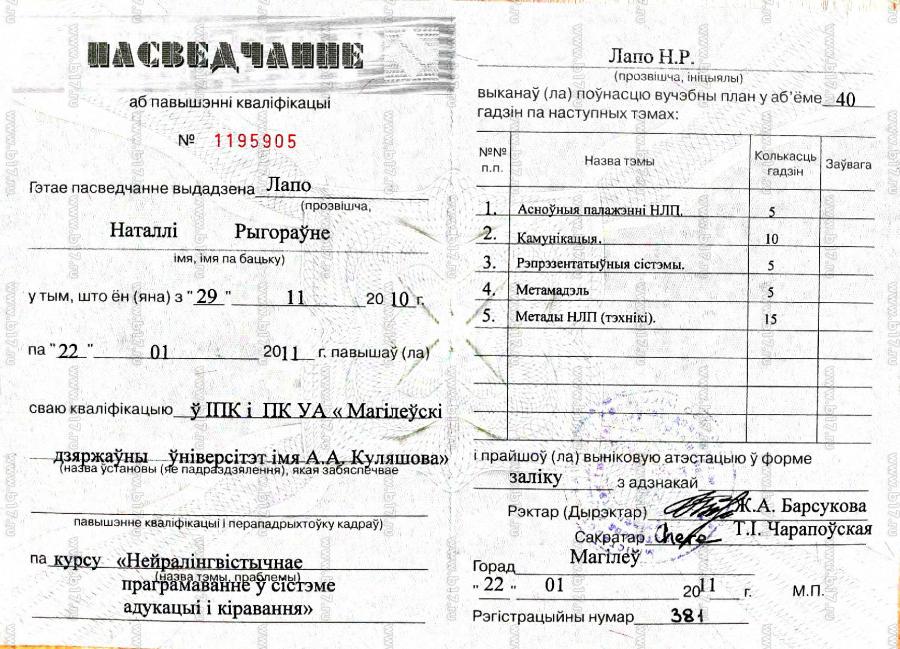 ПАСВЕДЧАННЕ
аб павышэнні кваліфікацыі
№ 1195905
Гэтае пасведчанне выдадзена Лапо
(прозвішча,
Наталлі Рыгораўне
імя, імя па бацьку)
у тым, што ён (яна) з "29" 11 2010 г.
па "22" 01 2011 г. павышаў (ла)
сваю кваліфікацыю ў ІПК і ПК УА « Магілеўскі
дзяржаўны ўніверсітэт імя А.А. Куляшова»
(назва ўстановы (яе падраздзялення), якая забяспечвае
павышэнне кваліфікацыі і перападрыхтоўку кадраў)
па курсу «Нейралінгвістычнае
(назва тэмы, праблемы)
праграмаванне ў сістэме
адукацыі і кіравання»
Лапо Н.Р.
(прозвішча, ініцыялы)
выканаў (ла) поўнасцю вучэбны план у аб'ёме 40
гадзін па наступных тэмах:
№№ п.п. Назва тэмы Колькасць гадзін Заўвага
1. Асноўныя палажэнні НЛП. 5
2. Камунікацыя. 10
3. Рэпрэзентатыўныя сістэмы. 5
4. Метамадэль 5
5. Метады НЛП (тэхнікі). 15
і прайшоў (ла) выніковую атэстацыю ў форме
заліку з адзнакай
Рэктар (Дырэктар) Ж.А. Барсукова
Сакратар Т.І. Чарапоўская
Горад Магілеў
"22" 01 2011 г. М.П.
Рэгістрацыйны нумар 381
www.b17.ru